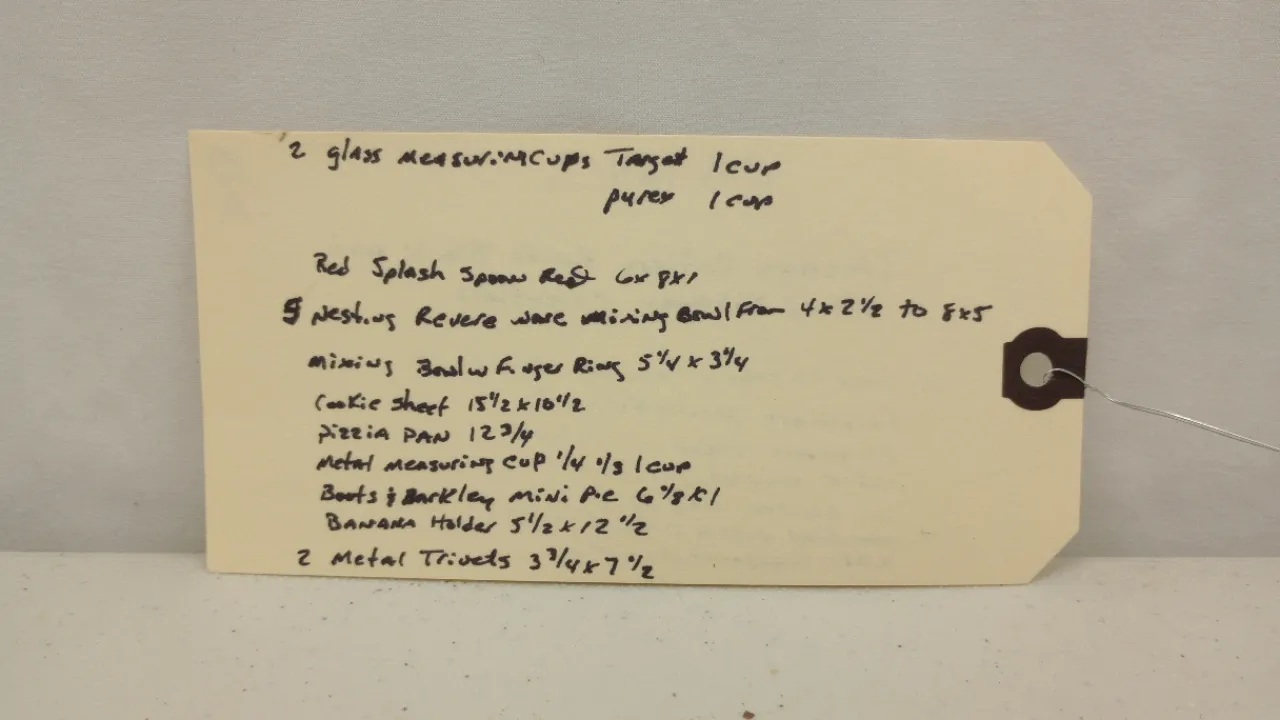 2 glass measurinGCups Target 1 cup
pyrex 1 cup
Red Splash Spoon Rest 6x8x1
5 Nesting Revere ware Mixing Bowl From 4x2 1/2 to 8x5
Mixing Bowl w Finger Ring 5 1/4 x 3 1/4
Cookie sheet 15 1/2 x 10 1/2
Pizzia PAN 12 3/4
Metal measuring cup 1/4 1/3 1 cup
Boots & Barkley Mini Pie 6 1/8 x 1
BANANA Holder 5 1/2 x 12 1/2
2 Metal Trivets 3 3/4 x 7 1/2